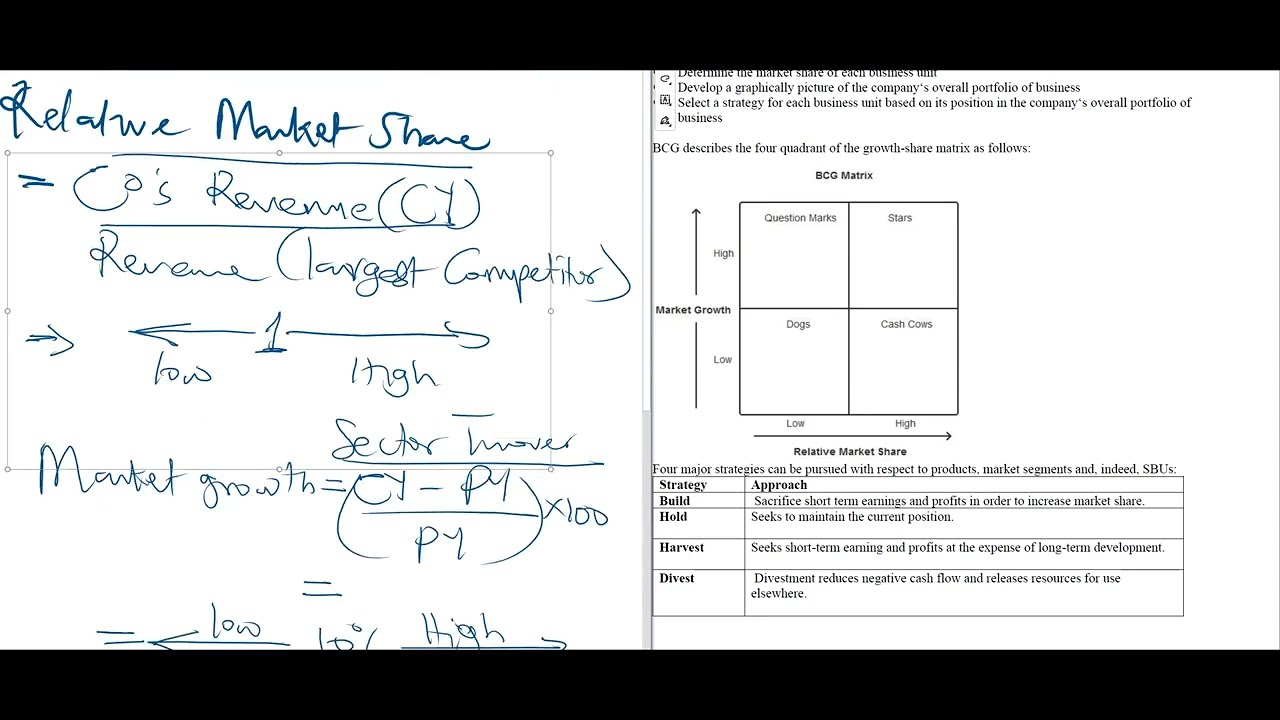 Relative Market Share
= Co's Revenue (CY)
Revenue (largest Competitor)
⇒ 1
low High
Sector Turnover
Market growth = (CY - PY) × 100
PY
=
= low 10% High
Determine the market share of each business unit
Develop a graphically picture of the company's overall portfolio of business
Select a strategy for each business unit based on its position in the company's overall portfolio of
business
BCG describes the four quadrant of the growth-share matrix as follows:
BCG Matrix
Question Marks Stars
High
Market Growth
Dogs Cash Cows
Low
Low High
Relative Market Share
Four major strategies can be pursued with respect to products, market segments and, indeed, SBUs:
Strategy Approach
Build Sacrifice short term earnings and profits in order to increase market share.
Hold Seeks to maintain the current position.
Harvest Seeks short-term earning and profits at the expense of long-term development.
Divest Divestment reduces negative cash flow and releases resources for use
elsewhere.